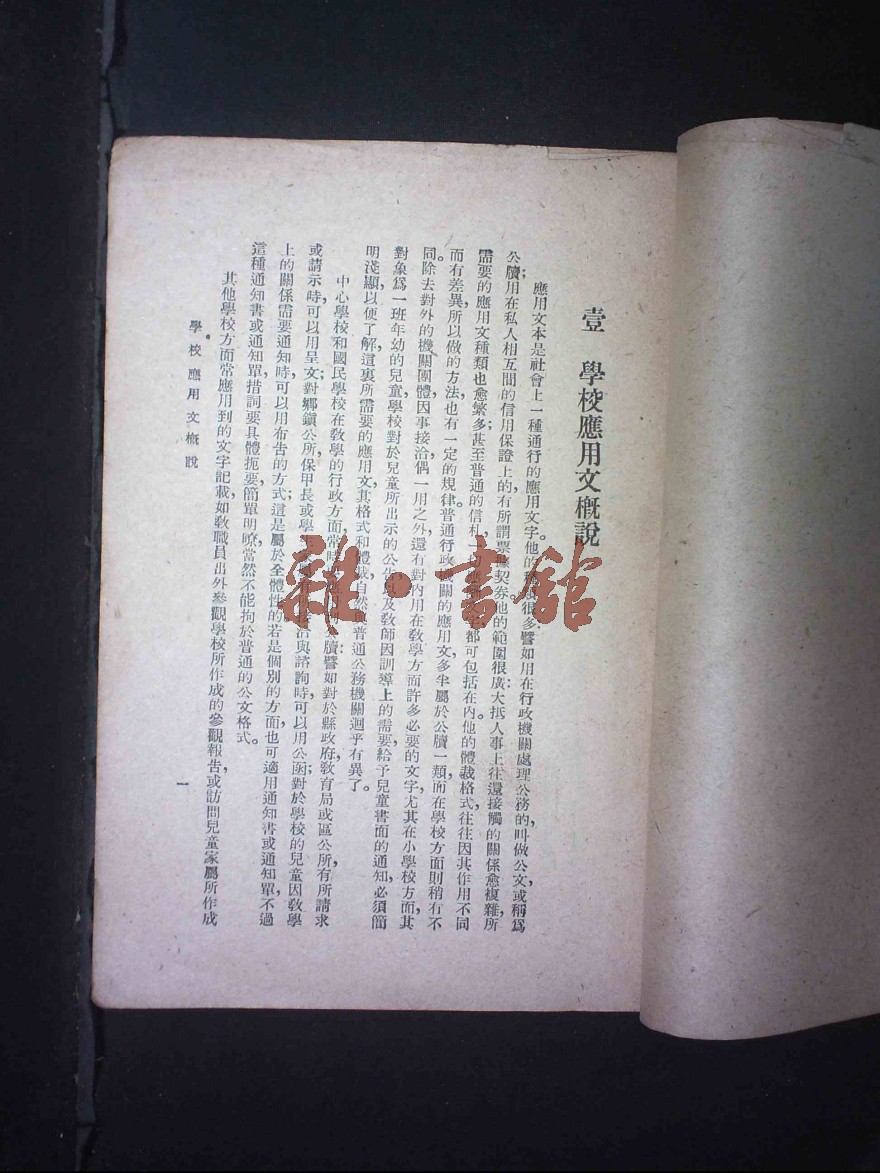 壹　學校應用文概說
應用文本是社會上一種通行的應用文字。他的很多，譬如用在行政機關處理公務的叫做公文或稱爲
公牘；用在私人相互間的信用保證上的，有所謂票據契券。他的範圍很廣，大抵人事上往還接觸的關係愈複雜，所
需要的應用文種類也愈繁多；甚至普通的信札都可包括在內。他的體裁格式往往因其作用不同
而有差異，所以做的方法也有一定的規律。普通行政機關的應用文，多半屬於公牘一類，而在學校方面則稍有不
同。除去對外的機關團體因事接洽偶一用之外，還有對內用在教學方面許多必要的文字，尤其在小學校方面，其
對象爲一班年幼的兒童，學校對於兒童所出示的公告，以及教師因訓導上的需要，給予兒童書面的通知，必須簡
明淺顯，以便了解，這裏所需要的應用文，其格式和體裁，自然與普通公務機關迥乎有異了。
中心學校和國民學校在教學的行政方面，常時牘：譬如對於縣政府，教育局或區公所，有所請求
或請示時，可以用呈文；對鄉鎮公所，保甲長或學洽與諮詢時，可以用公函；對於學校的兒童，因教學
上的關係，需要通知時，可以用布告的方式；這是屬於全體性的。若是個別的方面，也可適用通知書或通知單。不過
這種通知書或通知單，措詞要具體扼要，簡單明瞭，當然不能拘於普通的公文格式。
其他學校方面常應用到的文字記載，如教職員出外參觀學校所作成的參觀報告，或訪問兒童家屬所作成
學校應用文概說
一
雜·書館